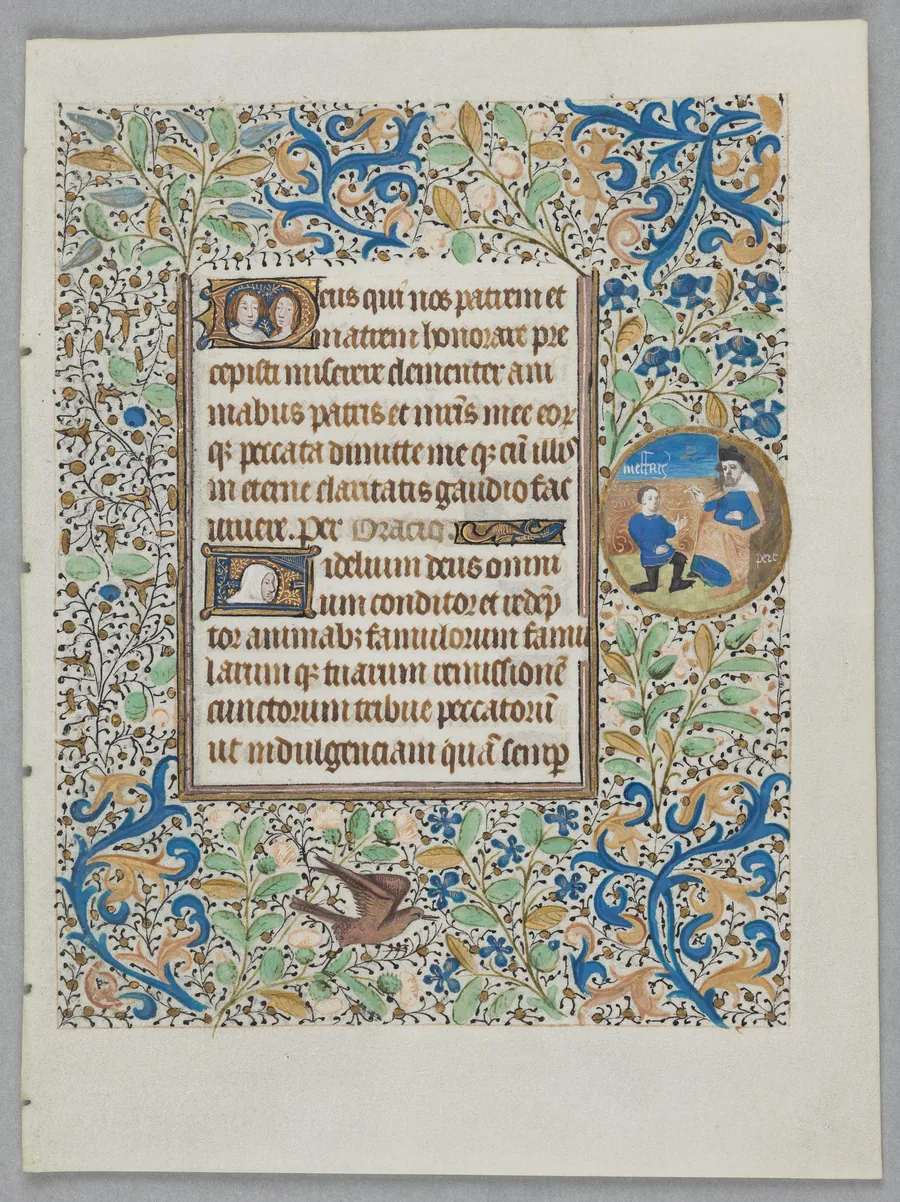 Deus qui nos patrem et
matrem honorare pre
cepisti miserere clementer ani
mabus patris et mr̄is mee eor
qꝫ peccata dimitte me qꝫ cū illis
in eterne claritatis gaudio fac
uiuere. Per Oracio.
Fidelium deus omni
um conditor et redēp
tor animabꝫ famulorum famu
larum qꝫ tuarum remissionē
cunctorum tribue peccatorū
ut indulgenciam quā semꝑ